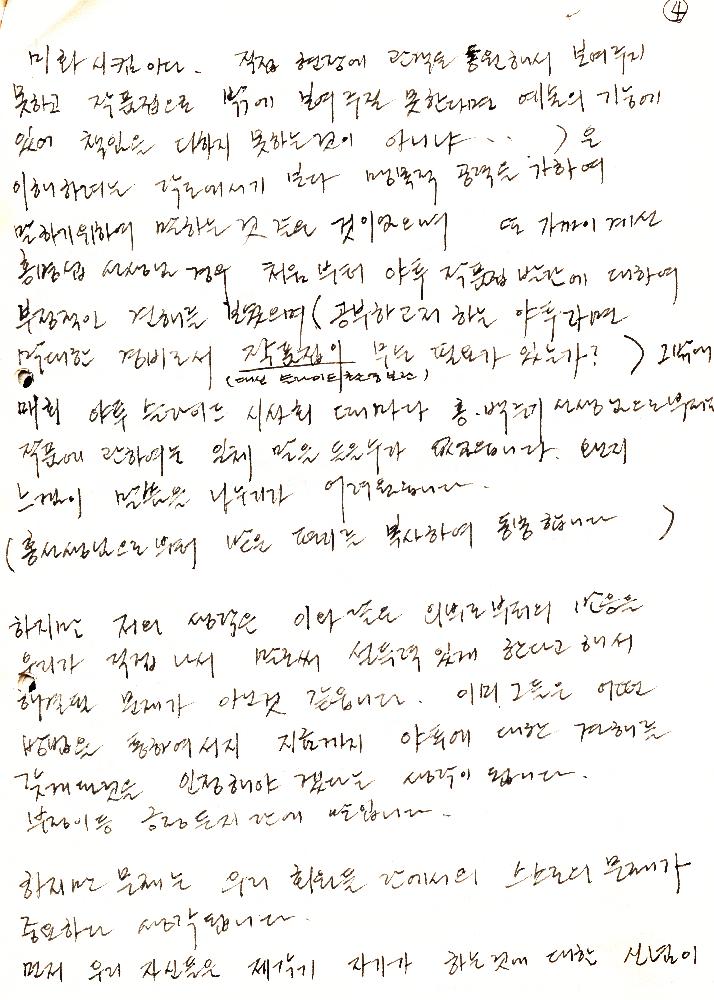 ④
미화시킴이다. 직접 현장에 관객을 동원해서 보여주지
못하고 작품집으로 밖에 보여주질 못한다면 예술의 기능에
있어 책임을 다하지 못하는 것이 아니냐‥ ) 은
이해하려는 각도에서기 보다 맹목적 공격을 가하여
말하기 위하여 말하는 것 같은 것이었으며 또 가까이 계신
홍명섭 선생님 경우 처음부터 야투 작품집 발간에 대하여
부정적인 견해를 보였으며 ( 공부하고저 하는 야투라면
막대한 경비로서 작품집이 무슨 필요가 있는가? ) 그밖에
(대신
매회 야투 슬라이드 시사회 때마다 홍· 선생님으로부터도
작품에 관하여는 일체 말을 들을수가 없었습니다. 왠지
느낌이 말씀을 나누기가 어려웠습니다.
( 홍선생님으로부터 받은 편지를 복사하여 동봉합니다 )
하지만 저의 생각은 이와 같은 외부로부터의 반응을
우리가 직접 나서 말로써 설득력 있게 한다고 해서
해결될 문제가 아닌것 같습니다. 이미 그들은 어떤
방법을 통하여서지 지금까지 야투에 대한 견해를
갖게 되었을 인정해야 겠다는 생각이 됩니다.
부정이등 긍정등지 간에 말입니다.
하지만 문제는 우리 회원들 간에서의 스스로의 문제가
중요하다 생각됩니다.
먼저 우리 자신들은 제각기 자기가 하는것에 대한 신념이